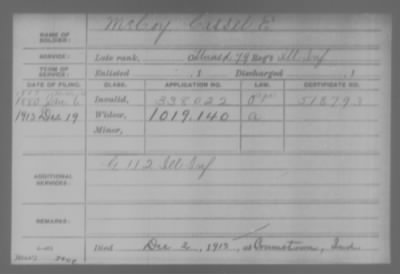 NAME OF SOLDIER: McCoy
SERVICE: Late rank, 79 Reg't Ill. Inf
TERM OF SERVICE: Enlisted , 1 Discharged , 1
DATE OF FILING. CLASS. APPLICATION NO. LAW. CERTIFICATE NO.
1880 Jan 6 Invalid, 338022
1913 Dec 19 Widow, 1019.140 a
Minor,
ADDITIONAL SERVICES: G 112 Ill Inf
REMARKS:
Died Dec 2, 1913, at Ind.